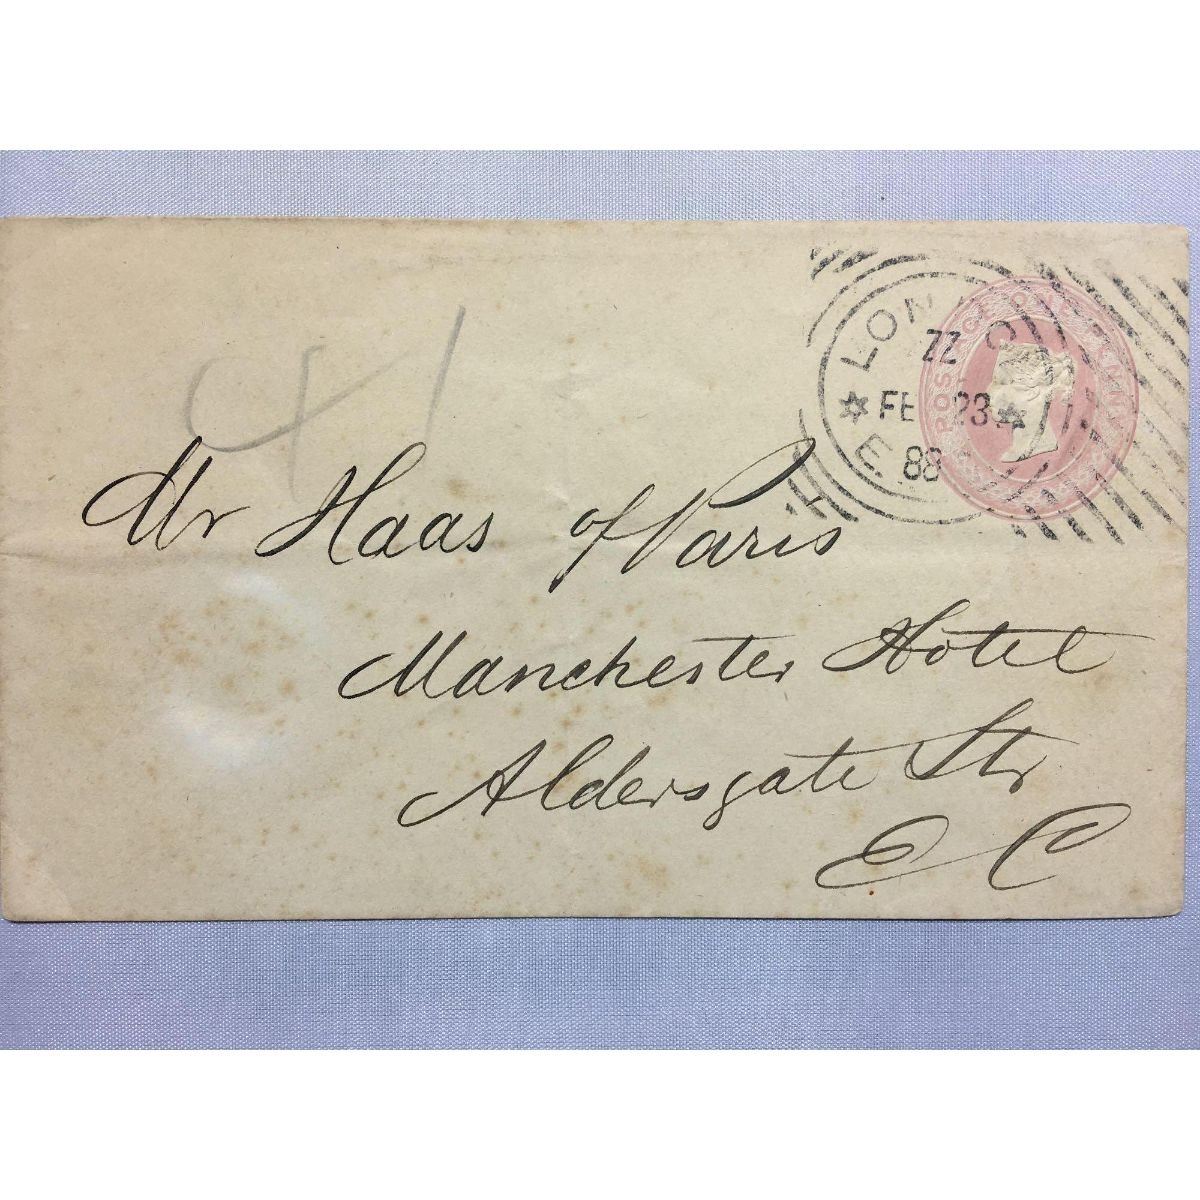 41
LONDON
ZZ
FE 23
88
E
POSTAGE ONE PENNY
Mr Haas of Paris
Manchester Hotel
Aldersgate Str
E C